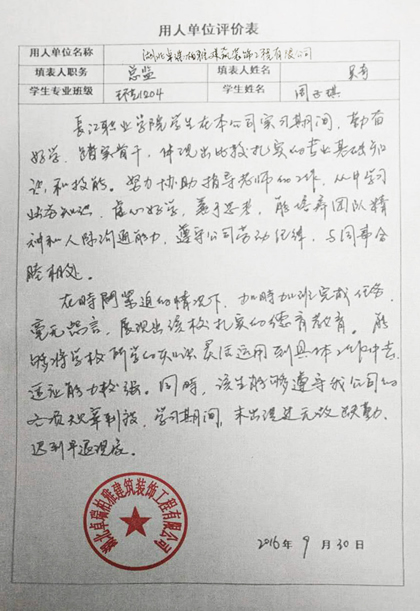 用人单位评价表
用人单位名称 湖北卓瑞柏雅建筑装饰工程有限公司
填表人职务 总监 填表人姓名 吴奇
学生专业班级 环艺1204 学生姓名
长江职业学院学生在本公司实习期间，勤奋
好学，踏实肯干，体现出比较扎实的专业基础知
识和技能。努力协助指导老师的工作，从中学习
业务知识，虚心好学，善于思考，能培养团队精
神和人际沟通能力，遵守公司劳动纪律，与同事合
睦相处。
在時間紧迫的情况下，加時加班完成任务，
毫无怨言，展现出该校扎实的德育教育。能
够将学校所学的知识灵活运用到具体工作中去，
适应能力较强。同時，该生能够遵守我公司的
各项规章制度，学习期间，未出现过无故缺勤，
迟到早退现象。
湖北卓瑞柏雅建筑装饰工程有限公司
2016年9月30日